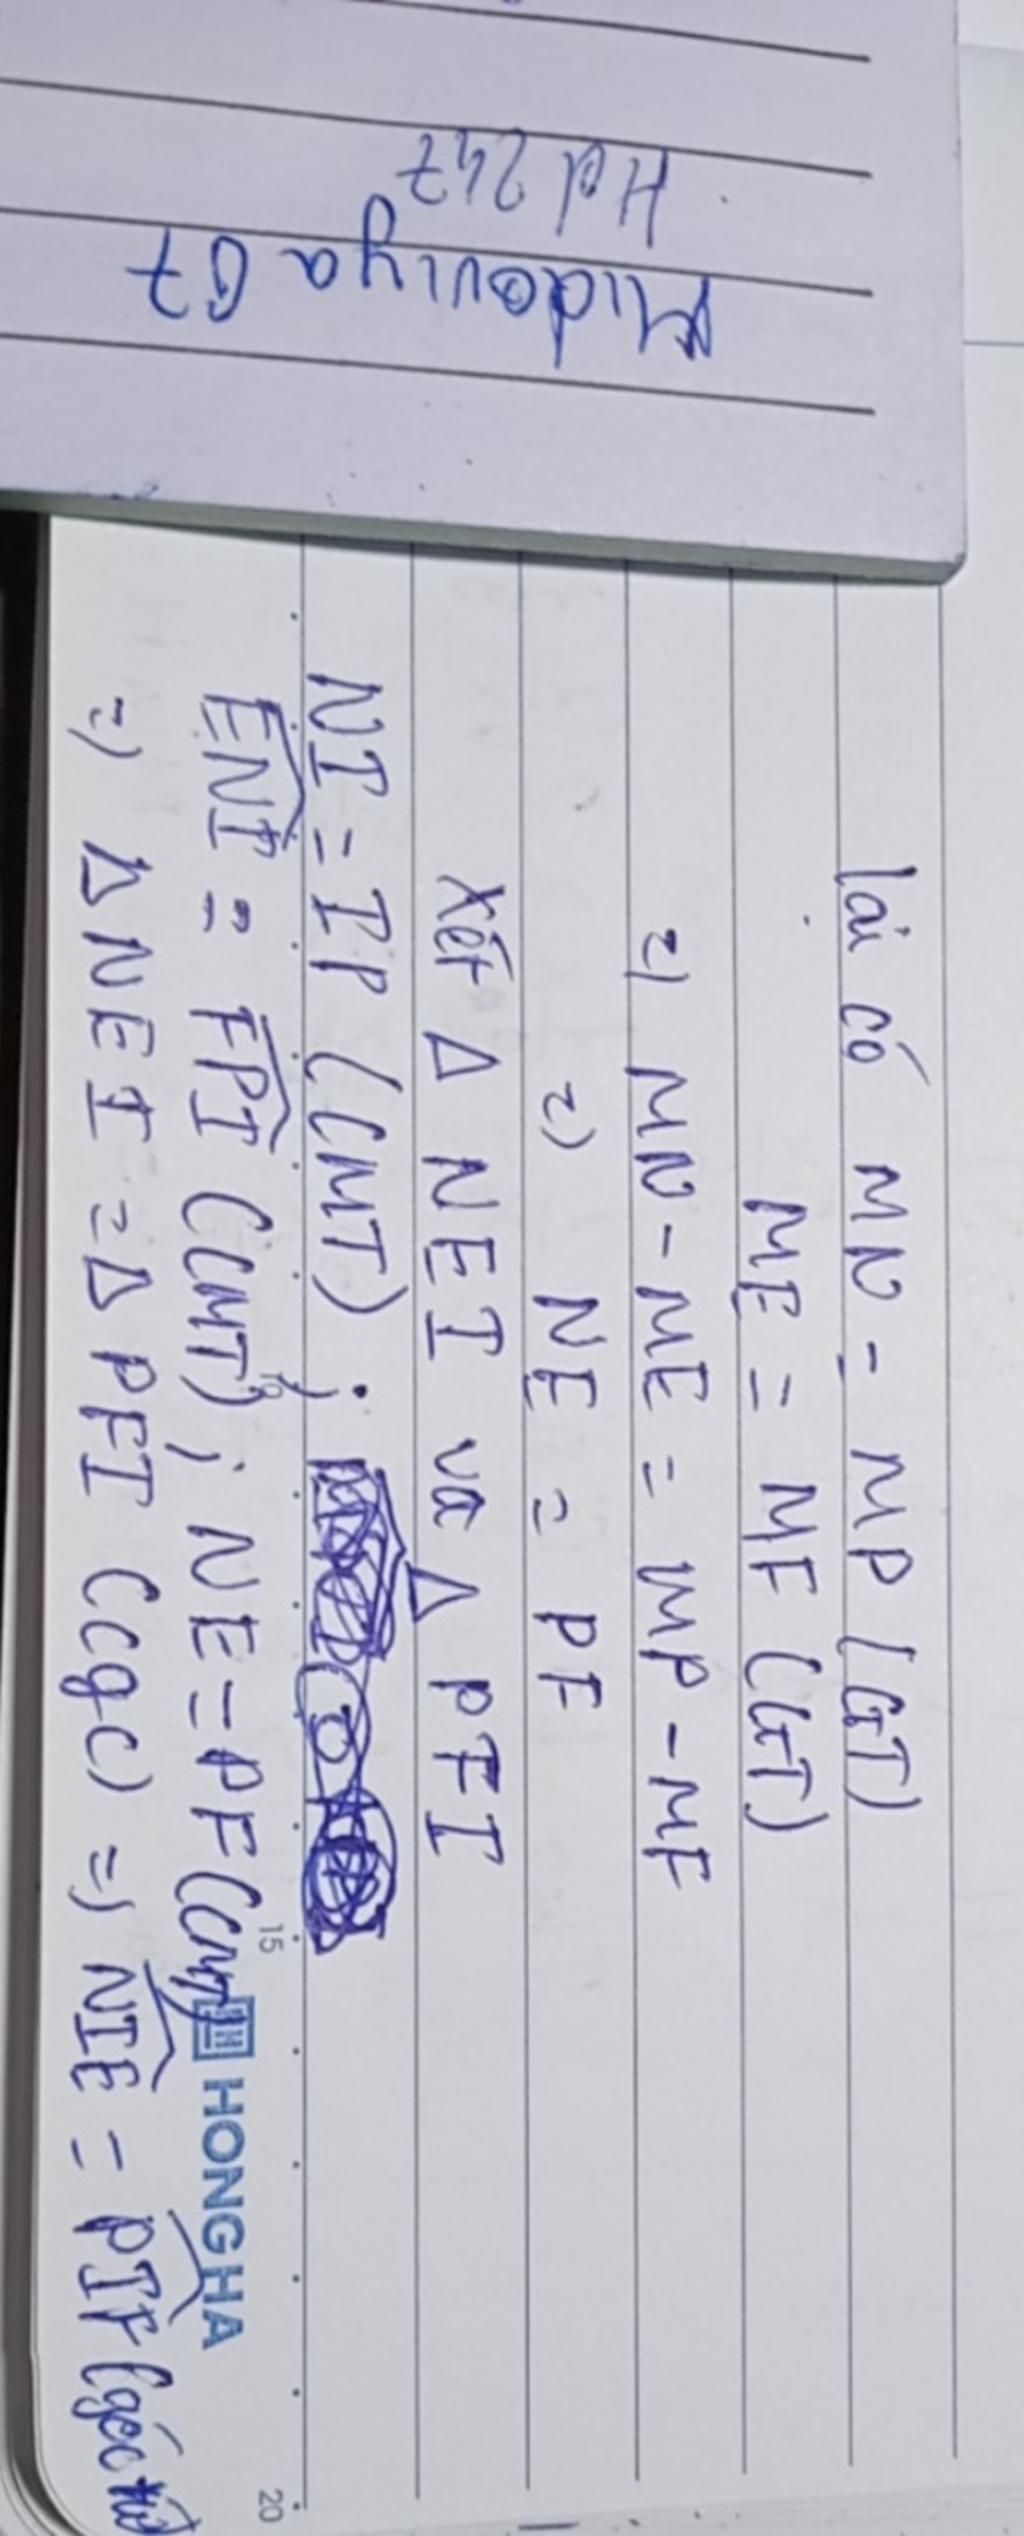 Midoviya 07
Hd 247
lại có MN = MP (GT)
ME = MF (GT)
=) MN - ME = MP - MF
=) NE = PF
Xét Δ NEI và Δ PFI
NI = IP (CMT) ;
ENI = FPI (CMT) ; NE = PF (CMT)
=) Δ NEI = Δ PFI (cgc) =) NIE = PIF (góc
10
15
20
HONG HA